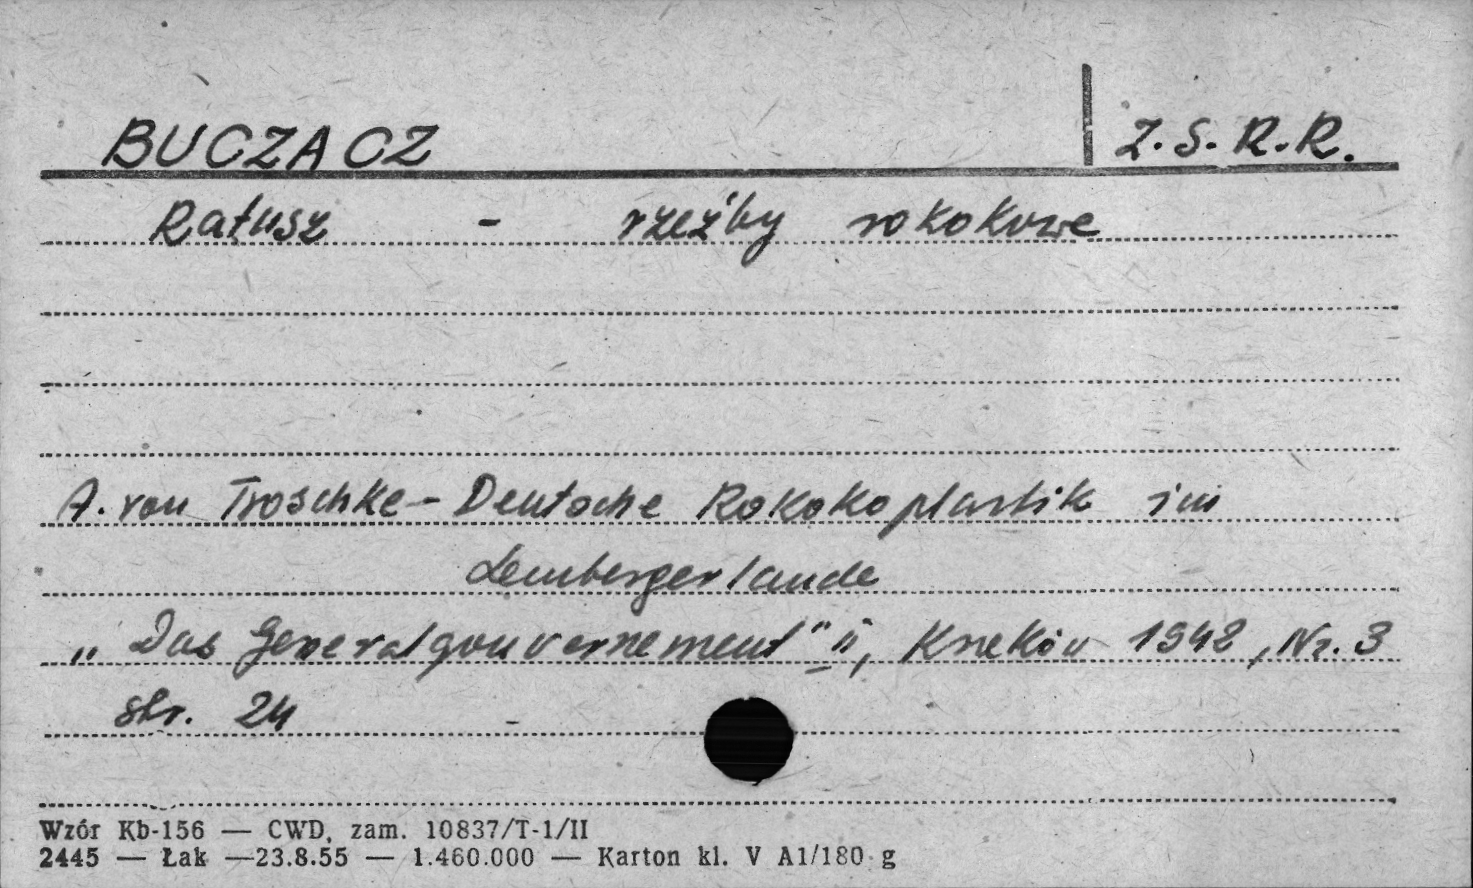 BUCZACZ Z.S.R.R.
Ratusz - rzeźby rokokowe
A. von Troschke - Deutsche Rokokoplastik im
Lembergerlande
„Das Generalgouvernement" II, Kraków 1942, Nr. 3
str. 24
Wzór Kb-156 — CWD, zam. 10837/T-1/II
2445 — Łak —23.8.55 — 1.460.000 — Karton kl. V A1/180 g